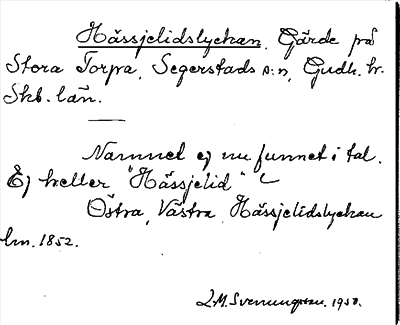 Hässjelidslyckan. Gärde på
Stora Torpa, Segerstads s:n, Gudh. hr.
Skb. län.
Namnet ej nu funnet i tal.
Ej heller "Hässjelid"
Östra, Västra Hässjelidslyckan
hm. 1852.
L.M. Svenungsson. 1950.